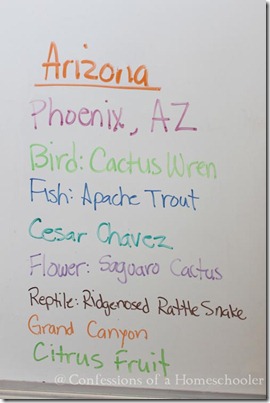 Arizona
Phoenix, AZ
Bird: Cactus Wren
Fish: Apache Trout
Cesar Chavez
Flower: Saguaro Cactus
Reptile: Ridgenosed Rattle Snake
Grand Canyon
Citrus Fruit
@ Confessions of a Homeschooler